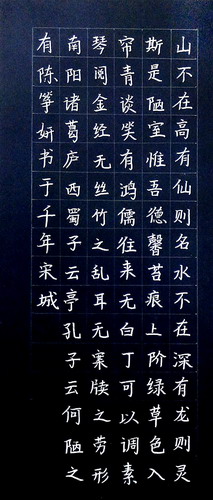 山不在高有仙则名水不在深有龙则灵
斯是陋室惟吾德馨苔痕上阶绿草色入
帘青谈笑有鸿儒往来无白丁可以调素
琴阅金经无丝竹之乱耳无案牍之劳形
南阳诸葛庐西蜀子云亭孔子云何陋之
有陈筝妍书于千年宋城